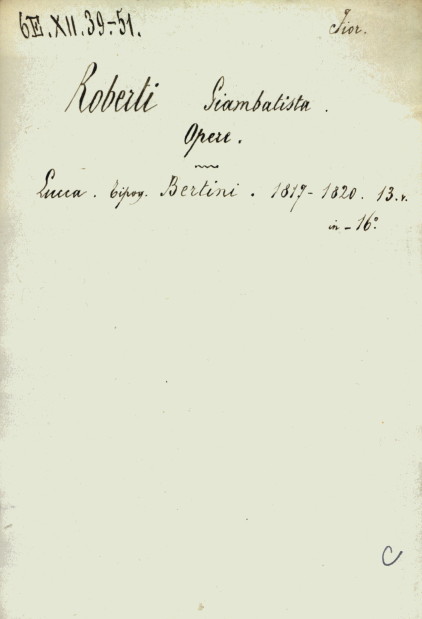 6E.XII.39-51. Fior.
Roberti Giambatista.
Opere.
Lucca. Tipog. Bertini. 1817-1820. 13.v.
in-16°
C